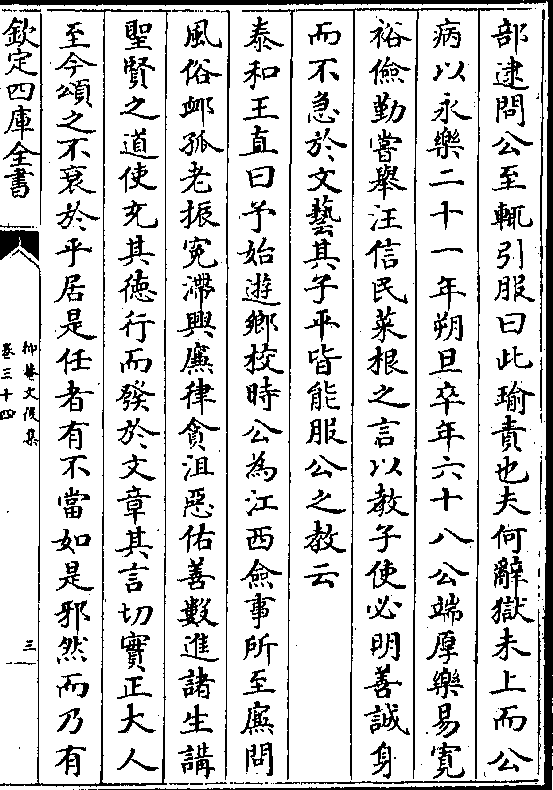 部逮問公至輒引服曰此瑜責也夫何辭獄未上而公
病以永樂二十一年朔旦卒年六十八公端厚樂易寛
裕儉勤嘗舉汪信民菜根之言以教子使必明善誠身
而不急於文藝其子平皆能服公之教云
泰和王直曰予始遊鄉校時公為江西僉事所至廉問
風俗䘏孤老振寃滯興廉律貪沮惡佑善數進諸生講
聖賢之道使充其徳行而發於文章其言切實正大人
至今頌之不衰於乎居是任者有不當如是邪然而乃有
欽定四庫全書
抑菴文後集
卷三十四
三